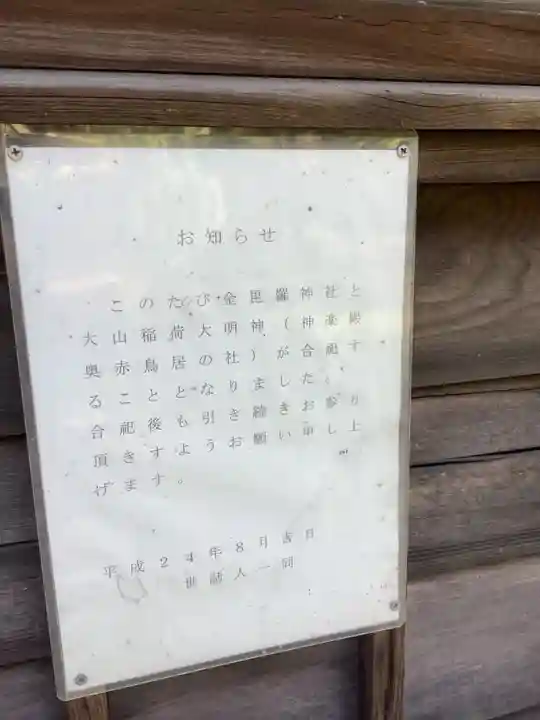 お知らせ
このたび金毘羅神社と
大山稲荷大明神（神楽殿
奥赤鳥居の社）が合祀す
ることとなりました。
合祀後も引き続きお参り
頂きすようお願い申し上
げます。
平成２４年８月吉日
世話人一同